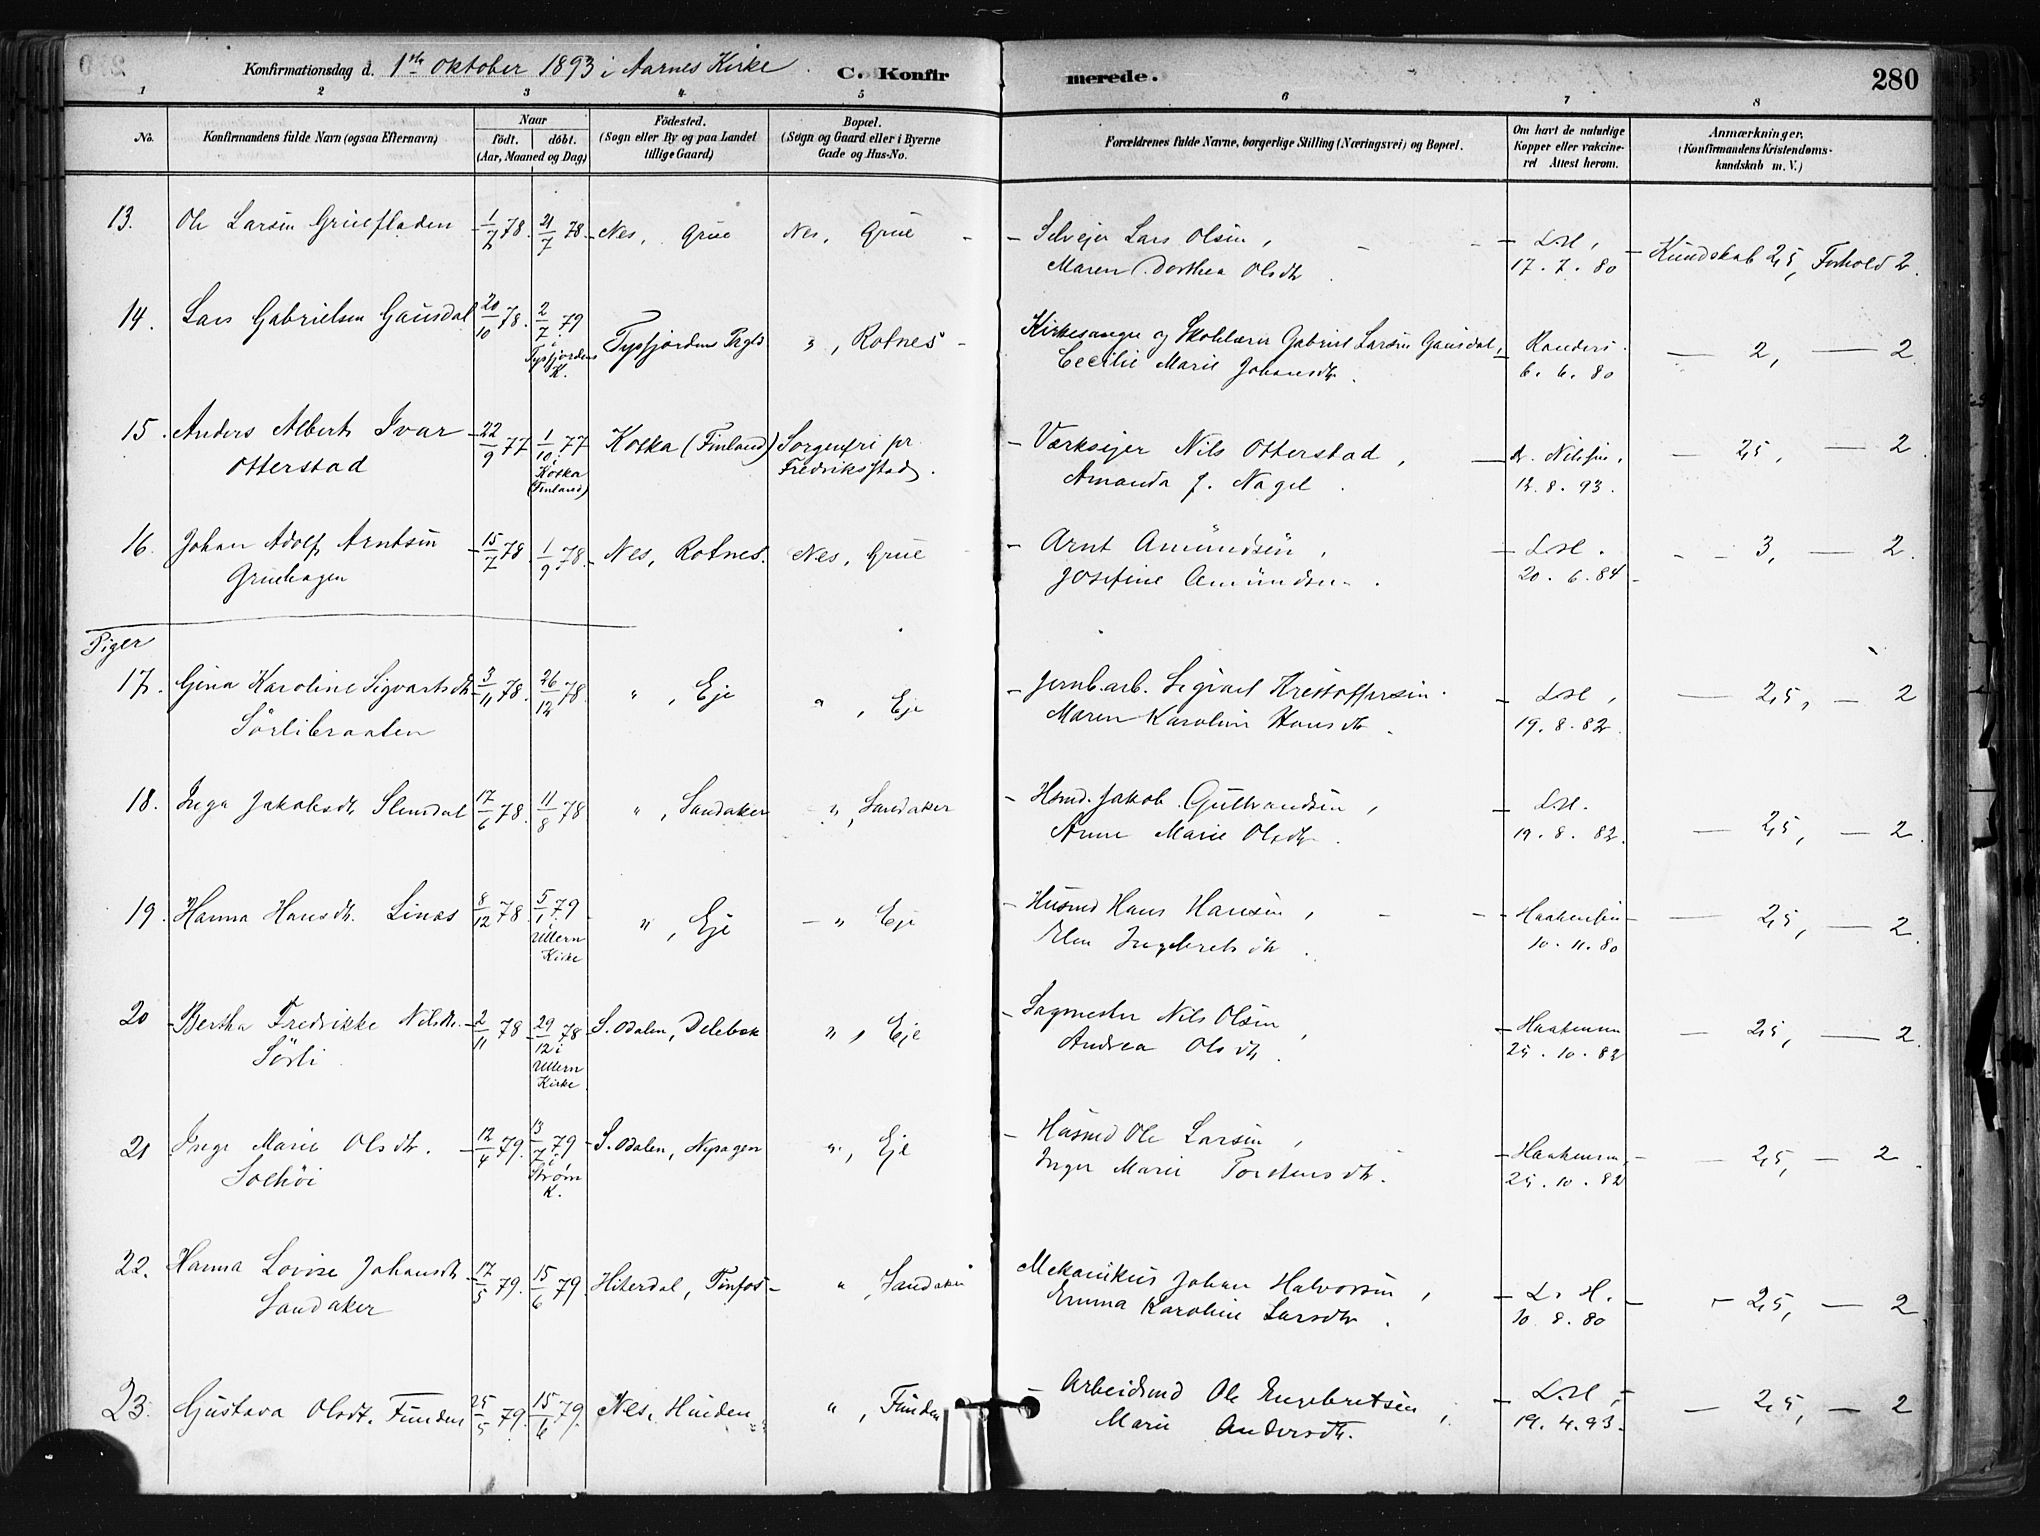 Konfirmationsdag d. 1ste Oktober 1893 i Aarnes Kirke C. Konfirmerede. 280
1 2 3 4 5 6 7 8
No. Konfirmandens fulde Navn (ogsaa Efternavn) Naar født. døbt. (Aar, Maaned og Dag) Fødested. (Sogn eller By og paa Landet tillige Gaard) Bopæl. (Sogn og Gaard eller i Byerne Gade og Hus-No. Forældrenes fulde Navne, borgerlige Stilling (Næringsvei) og Bopæl. Om havt de naturlige Kopper eller vakcineret Attest herom. Anmærkninger. (Konfirmandens Kristendomskundskab m. V.)
13. Ole Larsen Gruefladen 1/2 78. 21/7 78. Nes, Grue Nes, Grue Selvejer Lars Olsen, L.H, Kundskab 2,5, Forhold 2.
Maren Dorthea Olsdtr. 17. 7. 80
14. Lars Gabrielsen Gausdal 20/10 78. 2/7 79 i Tysfjordens K. Tysfjordens Prgld " , Rotnes Kirkesanger og Skolelærer Gabriel Larsen Gausdal, Randers. — 2, — 2.
Cecilie Marie Johansdtr. 6. 6. 80
15. Anders Albert Ivar 22/9 77 1/10 77 i Kotka (Finland) Kotka (Finland) Sorgenfri pr. Værksejer Nils Otterstad, — 2,5, — 2.
Otterstad Fredriksstad. Amanda J. Nagel. 12. 8. 93.
16. Johan Adolf Arntsen 15/7 78. 1/9 78. Nes, Rotnes. Nes, Grue Arnt Amundsen, L.H. — 3, — 2.
Gruehagen Josefine Amundsen. 20. 6. 84
Piger
17. Gina Karoline Sigvartsdtr 3/11 78. 26/12 78. " , Eje " , Eje Jernb.arb. Sigvart Kristoffersen. L.H, — 2,5, — 2
Sørlibraaten Maren Karoline Hansdtr. 19. 8. 82.
18. Inga Jakobsdtr. Slemdal 17/6 78. 11/8 78 " , Sandaker " , Sandaker Hsmd. Jakob Gulbrandsen, L.H. — 2,5, — 2.
Anne Marie Olsdtr. 19. 8. 82.
19. Hanna Hansdtr. Linås 8/12 78. 5/1 79 i Ullern Kirke " , Eje " Eje Husmd Hans Hansen, — 2,5, — 2.
Elen Ingebretsdtr. 10. 11. 80
20 Bertha Fredrikke Nilsdtr. 2/11 78 29/12 78 i Ullern Kirke S. Odalen, " , Eje Sagmester Nils Olsen, — 2,5, — 2.
Sørli Andrea Olsdtr. 25. 10. 82
21 Inge Marie Olsdtr. 12/4 79. 13/7 79 i Strøm K. S. Odalen, " , Eje Husmd Ole Larsen, — 2,5, — 2.
Solhøi Inger Marie Torstensdtr. 25. 10. 82
22. Hanna Lovise Johansdtr 17/5 79. 15/6 79. Hiterdal, Tinfos " , Sandaker Mekanikus Johan Halvorsen, L. H. — 2,5, — 2
Sandaker Emma Karoline Larsdtr. 10. 8. 80
23. Gustava Olsdt. Funden 25/5 79. 15/6 79. Nes, " , Funden Arbeidsmd Ole Engebretsen, L.H, — 2,5, — 2
Marie Andersdtr. 19. 4. 93.